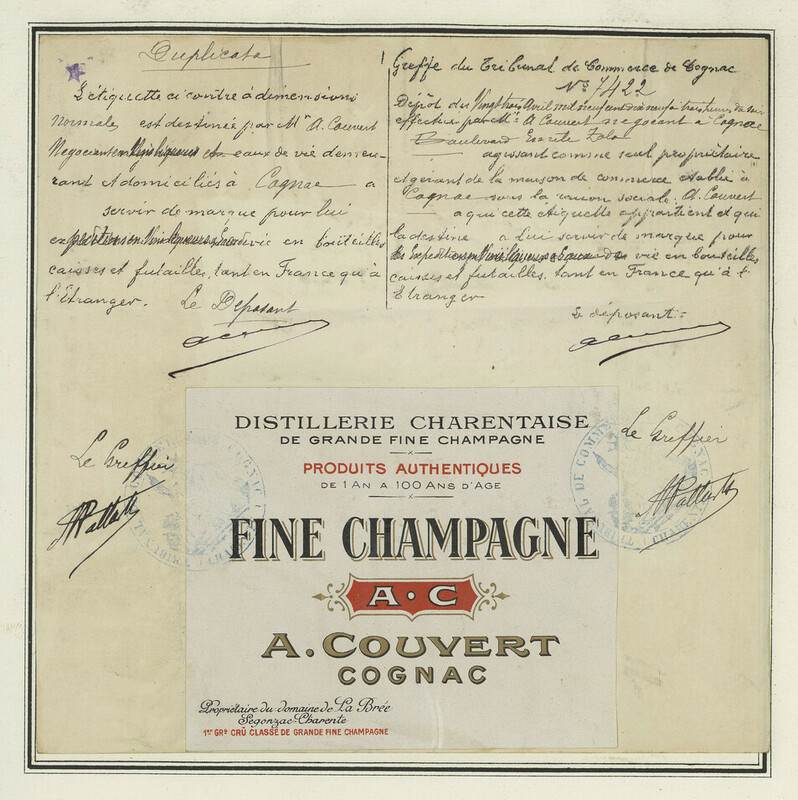 Duplicata
L'étiquette ci contre à dimensions
normales est destinée par Mr A. Couvert
Négociant en Vins liqueurs et eaux de vie demeu-
rant et domiciliés à Cognac a
servir de marque pour lui
expéditions en Vins liqueurs & Eaux de vie en bouteilles
caisses et futailles, tant en France qu'à
l'Étranger. Le Déposant
Greffe du Tribunal de Commerce de Cognac
No 7422
Dépôt du Vingt trois Avril mil neuf cent dix neuf à trois heures du soir
effectué par Mr A Couvert négociant à Cognac
Boulevard Emile Zola
agissant comme seul propriétaire
et gérant de la maison de commerce établie à
Cognac sous la raison sociale. A. Couvert
a qui cette étiquette appartient et qui
la destine à lui servir de marque pour
les Expéditions en Vins liqueurs & Eaux de vie en bouteilles
caisses et futailles, tant en France qu'à l'
Etranger
Le déposant :
Le Greffier
Le Greffier
DISTILLERIE CHARENTAISE
DE GRANDE FINE CHAMPAGNE
PRODUITS AUTHENTIQUES
DE 1 AN A 100 ANS D'AGE
FINE CHAMPAGNE
A·C
A. COUVERT
COGNAC
Propriétaire du domaine de La Brée
Segonzac-Charente
1er GRD CRÛ CLASSÉ DE GRANDE FINE CHAMPAGNE